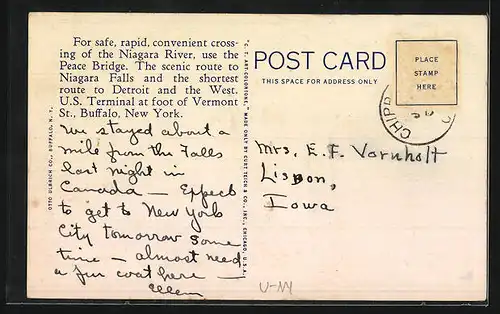 For safe, rapid, convenient cross-
ing of the Niagara River, use the
Peace Bridge. The scenic route to
Niagara Falls and the shortest
route to Detroit and the West.
U.S. Terminal at foot of Vermont
St., Buffalo, New York.
We stayed about a
mile from the Falls
last night in
Canada — Expect
to get to New York
City tomorrow some
time — almost need
a fur coat here —
Ellen
OTTO ULBRICH CO., BUFFALO, N. Y.
"C. T. ART-COLORTONE" MADE ONLY BY CURT TEICH & CO., INC., CHICAGO, U.S.A.
POST CARD
THIS SPACE FOR ADDRESS ONLY
PLACE
STAMP
HERE
CHIPP
Mrs. E. F. Vornholt
Lisbon,
Iowa
U-NY